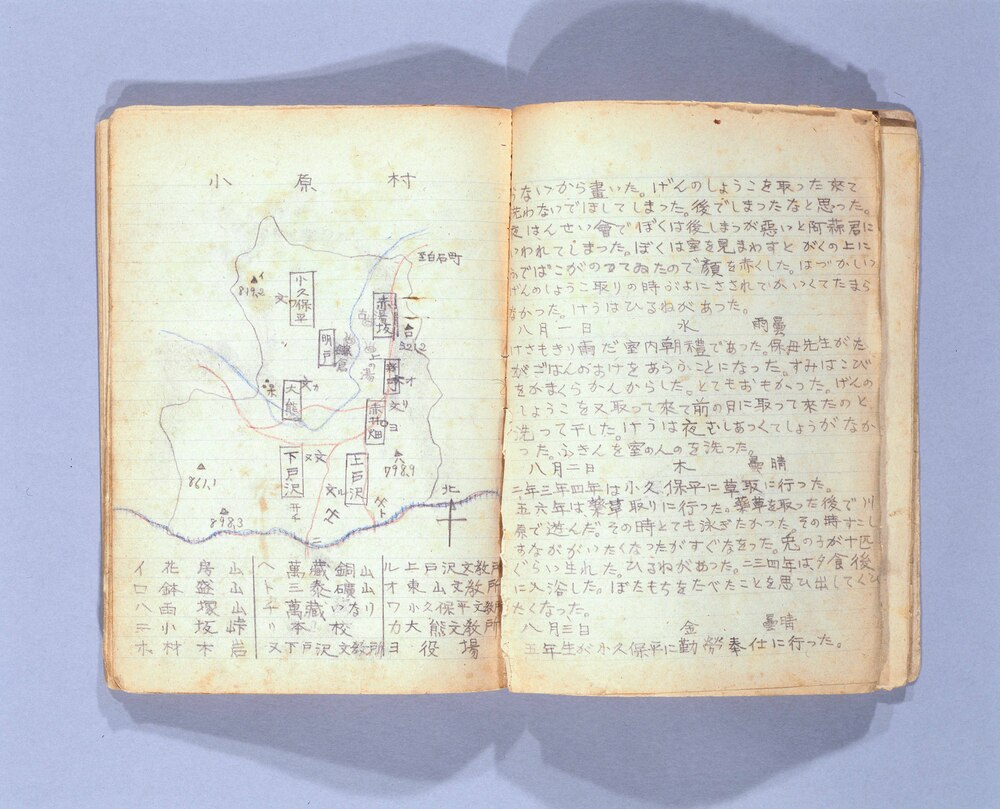 小原村
至白石町
イ
819,2
文
ワ
小久保平
赤湯坂
明戸
鎌倉
上の湯
チ
3212
文カ
大熊
ホ
新町
文オ
文リ
赤井畑
ロヨ
下戸沢
ヌ文
上戸沢
文ル
798,9
861,1
898,3
ニ
北
イ 花房山
ロ 鉢盛山
ハ 西塚山
ニ 小坂峠
ホ 材木岩
ヘ 萬藏銅山
ト 三泰礦山
チ 萬藏いなり
リ 本校
ヌ 下戸沢文教所
ル 上戸沢文教所
オ 東山文教所
ワ 小久保平文教所
カ 大熊文教所
ヨ 役場
ないから畫いた。げんのしょうこを取った來て
洗わないでほしてしまった。後でしまったなと思った。
夜はんせい會でぼくは後しまつが惡いと阿蘇君に
いわれてしまった。ぼくは室を見まわすとがくの上に
ふでばこがのってゐたので顔を赤くした。はづかしい
げんのしょうこ取りの時がよにさされてかいくてたまら
なかった。けうはひるねがあった。
八月一日 水 雨曇
けさもきり雨だ室内朝禮であった。保母先生がた
がごはんのおけをあらうことになった。すみはこび
をかまくらかんからした。とてもおもかった。げんの
しょうこを又取って來て前の日に取って來たのと
洗って干した。けうは夜むしあつくてしょうがなか
った。ふきんを室のんのを洗った。
八月二日 木 曇晴
二年三年四年は小久保平に草取に行った。
五六年は藥草取りに行った。藥草を取った後で川
原で遊んだ。その時とても泳ぎたかった。その時すこし
すながいたくなったがすぐなをった。兎のうが十匹
ぐらい生れた。ひるねがあった。二三四年は夕食後
に入浴した。ぼたもちをたべたことを思ひ出してくひ
たくなった。
八月三日 金 曇晴
五年生が小久保平に勤勞奉仕に行った。